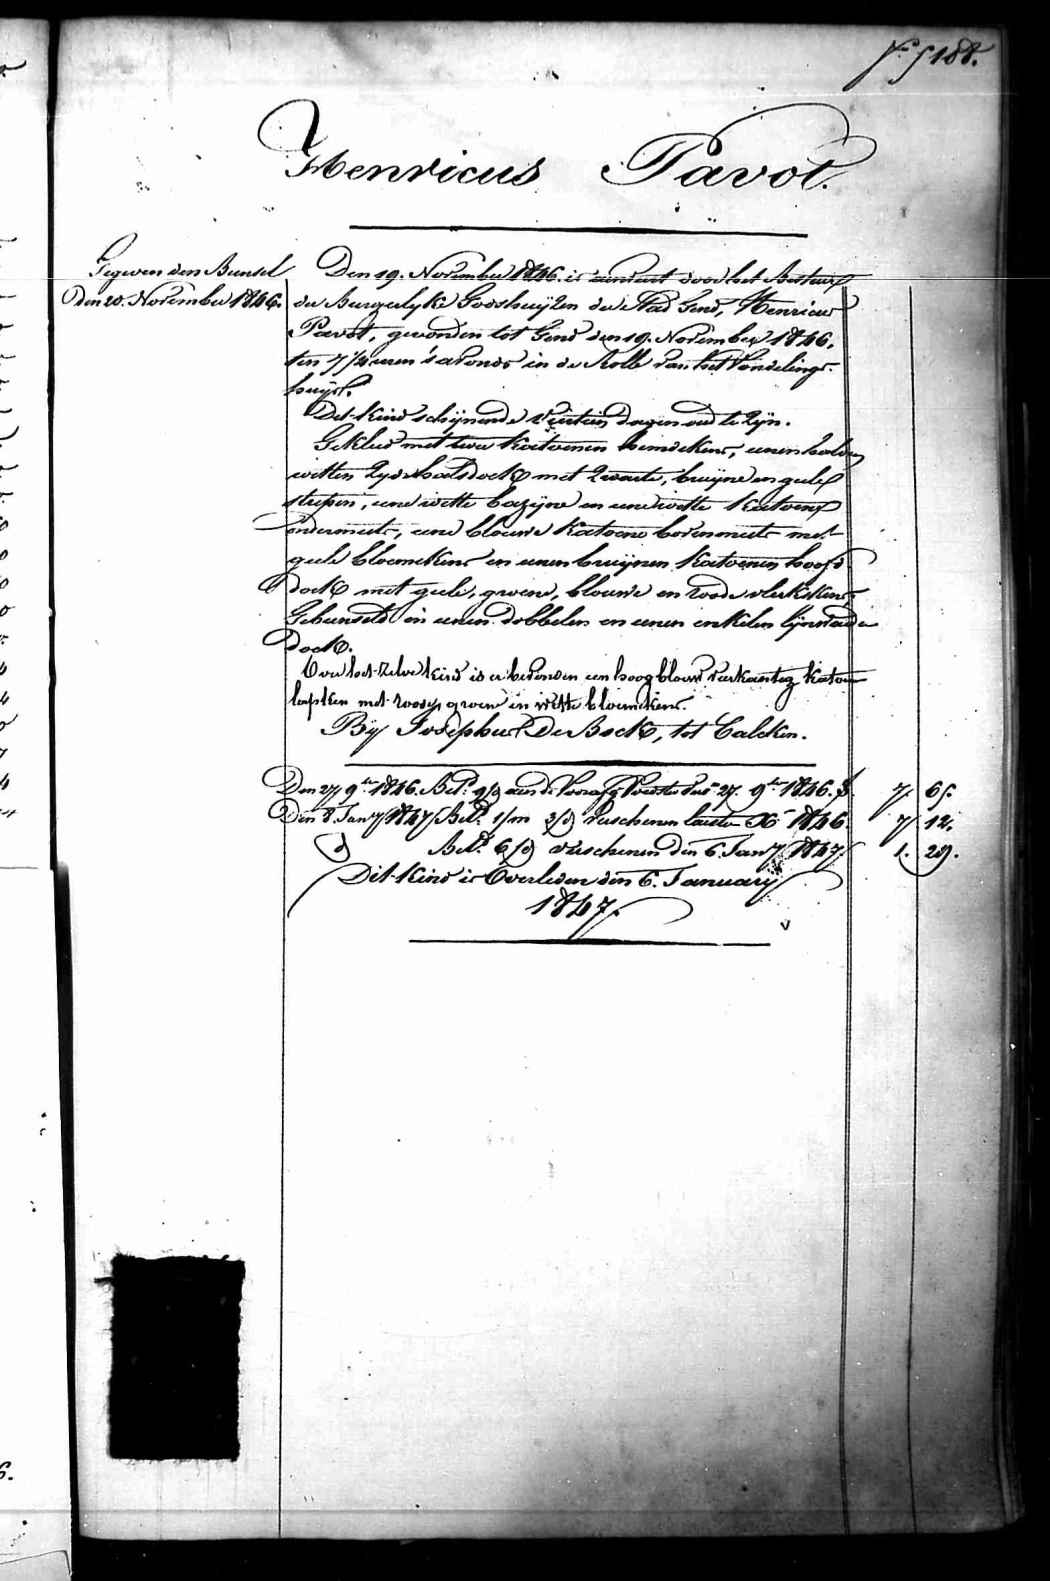 F° 188.
Henricus Pavot.
Gegeven den Bunsel
den 20. November 1846.
Den 19. November 1846. is aenveird door het Bestuer
der Burgerlyke Godshuyzen der Stad Gend, Henricus
Pavot, gevonden tot Gend den 19. November 1846.
ten 7 1/2 uren 's avonds in de Rolle van het Vondelings-
huys.
Dit kind schijnende veirtien dagen oud te zyn.
Gekleed met twee katoenen hemdekens, eenen halven
witten zyde halsdoek met zwarte, bruyne en geele
strepen, eene witte bazyne en eene witte katoene
ondermuts, eene blouwe katoene bovenmuts met
geele bloemekens en eenen bruynen katoenen hoofd
doek met geele, groene, blouwe en roode vlekskens,
Gebunseld in eenen dobbelen en eenen enkelen lijnwaeden
doek.
Over het zelve kind is er bevonden een hoog blouw vierkantig katoen
lapken met roode, groene en witte bloemekens.
By Josephus De Bock, tot Calcken.
Den 27 9ber 1846. Bet. 9/d aen de Voorafg Voester tot 27. 9ber 1846. f. 7. 65.
Den 8. Jany 1847 Bet. 1/m 3/d verschenen laesten Xber 1846. 7 12.
d° Bet. 6/d verschenen den 6. Jany 1847. 1. 29.
Dit kind is Overleden den 6. January
1847.